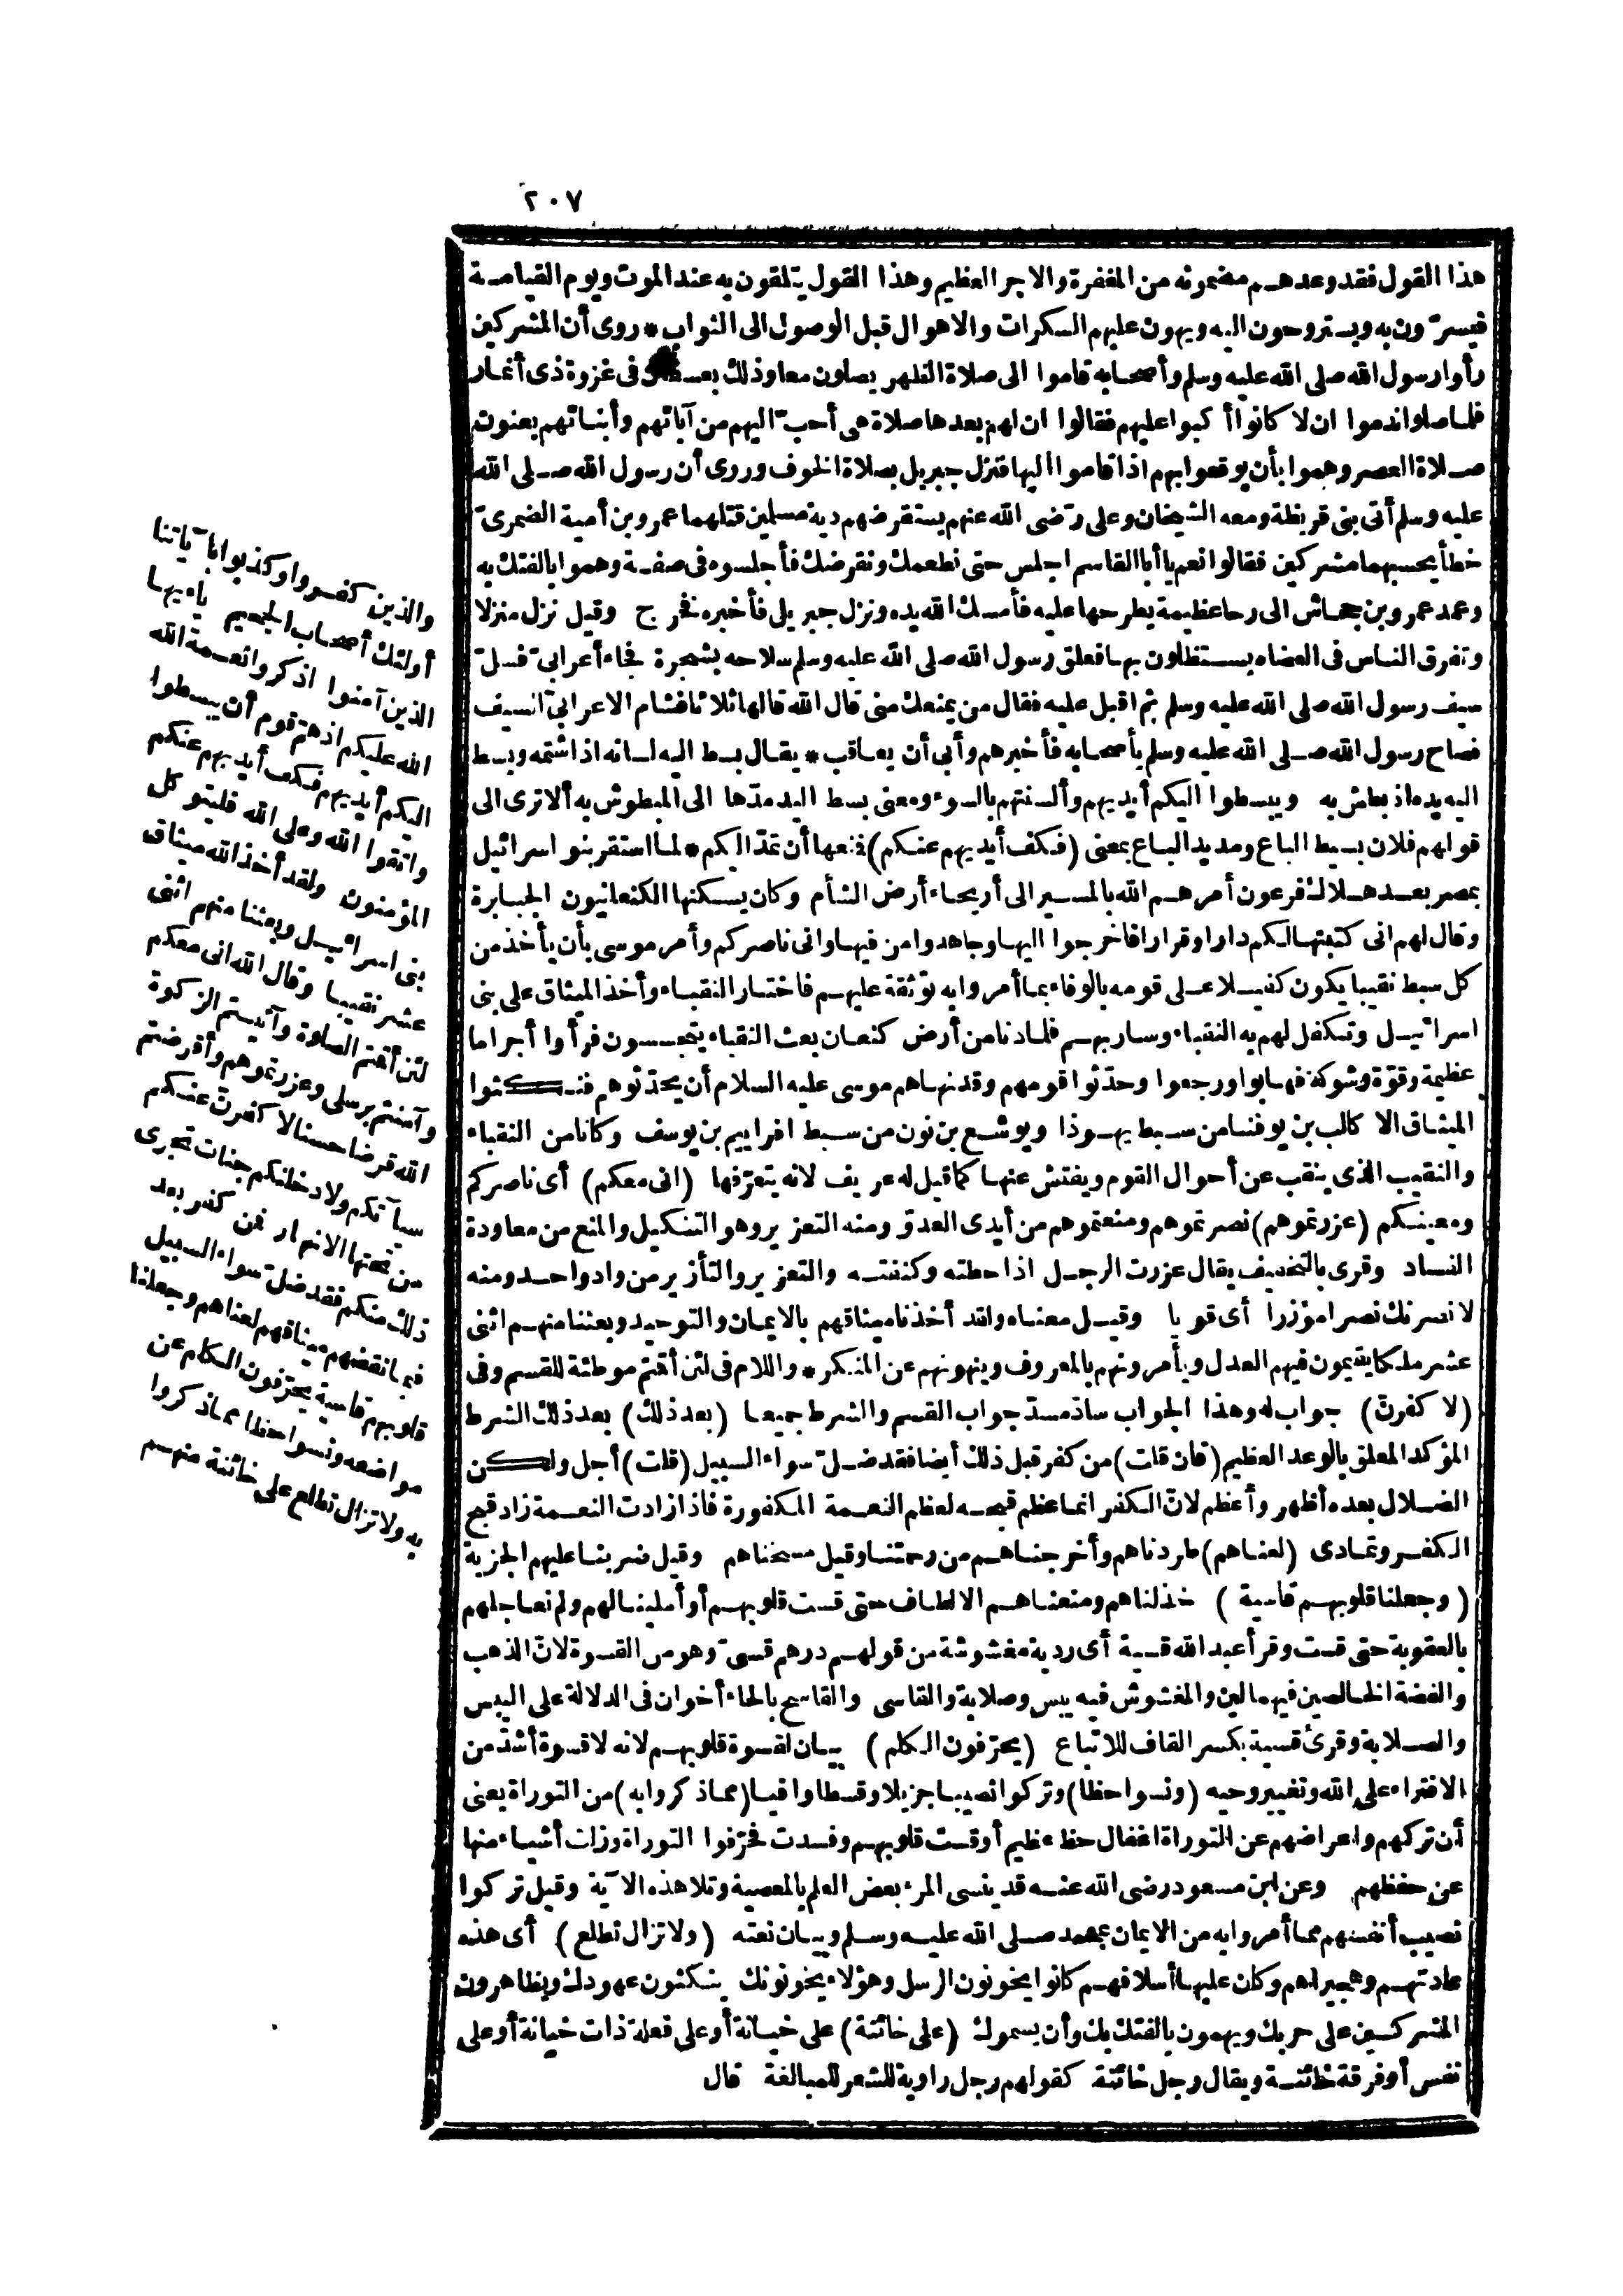 ٢٠٧
هذا القول فقد وعدهم مضمونه من المغفرة والاجر العظيم وهذا القول يتلقون به عند الموت ويوم القيامة
فيسرّون به ويستروحون اليه ويهون عليهم السكرات والاهوال قبل الوصول الى الثواب * روى أن المشركين
رأوا رسول الله صلى الله عليه وسلم وأصحابه قاموا الى صلاة الظهر يصلون معا وذلك بعسفان فى غزوة ذى أنمار
فلما صلوا ندموا ان لا كانوا أكبوا عليهم فقالوا ان لهم بعدها صلاة هى أحبّ اليهم من آبائهم وأبنائهم يعنون
صلاة العصر وهموا بأن يوقعوا بهم اذا قاموا اليها فنزل جبريل بصلاة الخوف وروى أن رسول الله صلى الله
عليه وسلم أتى بنى قريظة ومعه الشيخان وعلى رضى الله عنهم يستقرضهم دية مسلمين قتلهما عمرو بن أمية الضمرىّ
خطأ يحسبهما مشركين فقالوا نعم يا أبا القاسم اجلس حتى نطعمك ونقرضك فأجلسوه فى صفة وهموا بالفتك به
وعمد عمرو بن جحاش الى رحا عظيمة يطرحها عليه فأمسك الله يده ونزل جبريل فأخبره فخرج وقيل نزل منزلا
وتفرق الناس فى العضاه يستظلون بها فعلق رسول الله صلى الله عليه وسلم سلاحه بشجرة فجاء أعرابىّ فسلّ
سيف رسول الله صلى الله عليه وسلم ثم اقبل عليه فقال من يمنعك منى قال الله قالها ثلاثا فشام الاعرابىّ السيف
فصاح رسول الله صلى الله عليه وسلم بأصحابه فأخبرهم وأبى أن يعاقب * يقال بسط اليه لسانه اذا شتمه وبسط
اليه يده اذ بطش به ويبسطوا اليكم أيديهم وألسنتهم بالسوء ومعنى بسط اليد مدّها الى المبطوش به ألا ترى الى
قولهم فلان بسيط الباع ومديد الباع بمعنى (فكف أيديهم عنكم) فمنعها أن تمدّ اليكم * لما استقر بنو اسرائيل
بمصر بعد هلاك فرعون أمرهم الله بالمسير الى أريحاء أرض الشأم وكان يسكنها الكنعانيون الجبابرة
وقال لهم انى كتبتها لكم دارا وقرارا فاخرجوا اليها وجاهدوا من فيها وانى ناصركم وأمر موسى بأن يأخذ من
كل سبط نقيبا يكون كفيلا على قومه بالوفاء بما أمروا به توثقة عليهم فاختار النقباء وأخذ الميثاق على بنى
اسرائيل وتكفل لهم به النقباء وسار بهم فلما دنا من أرض كنعان بعث النقباء يتجسسون فرأوا أجراما
عظيمة وقوّة وشوكة فهابوا ورجعوا وحدّثوا قومهم وقد نهاهم موسى عليه السلام أن يحدّثوهم فنكثوا
الميثاق الا كالب بن يوفنا من سبط يهوذا ويوشع بن نون من سبط افراييم بن يوسف وكانا من النقباء
والنقيب الذى ينقب عن أحوال القوم ويفتش عنها كما قيل له عريف لانه يتعرّفها (انى معكم) أى ناصركم
ومعينكم (عزرتموهم) نصرتموهم ومنعتموهم من أيدى العدوّ ومنه التعزير وهو التنكيل والمنع من معاودة
الفساد وقرى بالتخفيف يقال عزرت الرجل اذا حطته وكنفته والتعزير والتأزير من واد واحد ومنه
لانصرنك نصرا مؤزرا أى قويا وقيل معناه ولقد أخذنا ميثاقهم بالايمان والتوحيد وبعثنا منهم اثنى
عشر ملكا يقيمون فيهم العدل ويأمرونهم بالمعروف وينهونهم عن المنكر * واللام فى لئن أقمتم موطئة للقسم وفى
(لا كفرنّ) جواب له وهذا الجواب سادّ مسدّ جواب القسم والشرط جميعا (بعد ذلك) بعد ذلك الشرط
المؤكد المعلق بالوعد العظيم (فان قلت) من كفر قبل ذلك أيضا فقد ضلّ سواء السبيل (قلت) أجل ولكن
الضلال بعده أظهر وأعظم لانّ الكفر انما عظم قبحه لعظم النعمة المكفورة فاذا زادت النعمة زاد قبح
الكفر وتمادى (لعناهم) طردناهم وأخرجناهم من رحمتنا وقيل مسخناهم وقيل ضربنا عليهم الجزية
(وجعلنا قلوبهم قاسية) خذلناهم ومنعناهم الالطاف حتى قست قلوبهم أو أملينا لهم ولم نعاجلهم
بالعقوبة حتى قست وقرأ عبد الله قسية أى ردية مغشوشة من قولهم درهم قسىّ وهو من القسوة لانّ الذهب
والفضة الخالصين فيهما لين والمغشوش فيه يبس وصلابة والقاسى والقاسح بالحاء أخوان فى الدلالة على اليبس
والصلابة وقرئ قسية بكسر القاف للاتباع (يحرّفون الكلم) بيان لقسوة قلوبهم لانه لا قسوة أشدّ من
الافتراء على الله وتغيير وحيه (ونسوا حظا) وتركوا نصيبا جزيلا وقسطا وافيا (مما ذكروا به) من التوراة يعنى
أن تركهم واعراضهم عن التوراة اغفال حظ عظيم أو قست قلوبهم وفسدت فحرّفوا التوراة وزلت أشياء منها
عن حفظهم وعن ابن مسعود رضى الله عنه قد ينسى المرء بعض العلم بالمعصية وتلا هذه الآية وقيل تركوا
نصيب أنفسهم مما أمروا به من الايمان بمحمد صلى الله عليه وسلم وبيان نعته (ولا تزال تطلع) أى هذه
عادتهم وهجيراهم وكان عليها أسلافهم كانوا يخونون الرسل وهؤلاء يخونونك ينكثون عهودك ويظاهرون
المشركين على حربك ويهمون بالفتك بك وأن يسموك (على خائنة) على خيانة أو على فعلة ذات خيانة أو على
نفس أو فرقة خائنة ويقال رجل خائنة كقولهم رجل راوية للشعر للمبالغة قال
والذين كفروا وكذبوا بآياتنا
أولئك أصحاب الجحيم ياءيها
الذين آمنوا اذكروا نعمة الله
الله عليكم اذ همّ قوم أن يبسطوا
اليكم أيديهم فكف أيديهم عنكم
واتقوا الله وعلى الله فليتوكل
المؤمنون ولقد أخذ الله ميثاق
بنى اسرائيل وبعثنا منهم اثنى
عشر نقيبا وقال الله انى معكم
لئن أقمتم الصلوة وآتيتم الزكوة
وآمنتم برسلى وعزرتموهم وأقرضتم
الله قرضا حسنا لا كفرنّ عنكم
سيآتكم ولادخلنكم جنات تجرى
من تحتها الانهار فمن كفر بعد
ذلك منكم فقد ضلّ سواء السبيل
فبما نقضهم ميثاقهم لعناهم وجعلنا
قلوبهم قاسية يحرّفون الكلم عن
مواضعه ونسوا حظا مما ذكروا
به ولا تزال تطلع على خائنة منهم